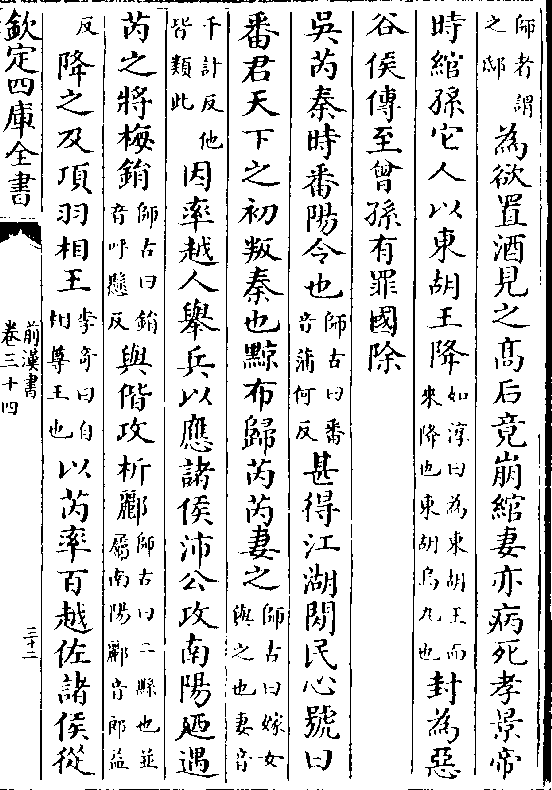 師者謂之邸為欲置酒見之髙后竟崩綰妻亦病死孝景帝
時綰孫它人以東胡王降如淳曰為東胡王而來降也東胡烏丸也封為惡
谷侯傳至曾孫有罪國除
吳芮秦時番陽令也師古曰番音蒲何反甚得江湖閒民心號曰
番君天下之初叛秦也黥布歸芮芮妻之師古曰嫁女與之也妻音
千計反他皆類此因率越人舉兵以應諸侯沛公攻南陽廼遇
芮之將梅鋗師古曰鋗音呼懸反與偕攻析酈師古曰二縣也並屬南陽酈音郎益
反降之及項羽相王李奇曰自相尊王也以芮率百越佐諸侯從
欽定四庫全書
前漢書
卷三十四
三十二